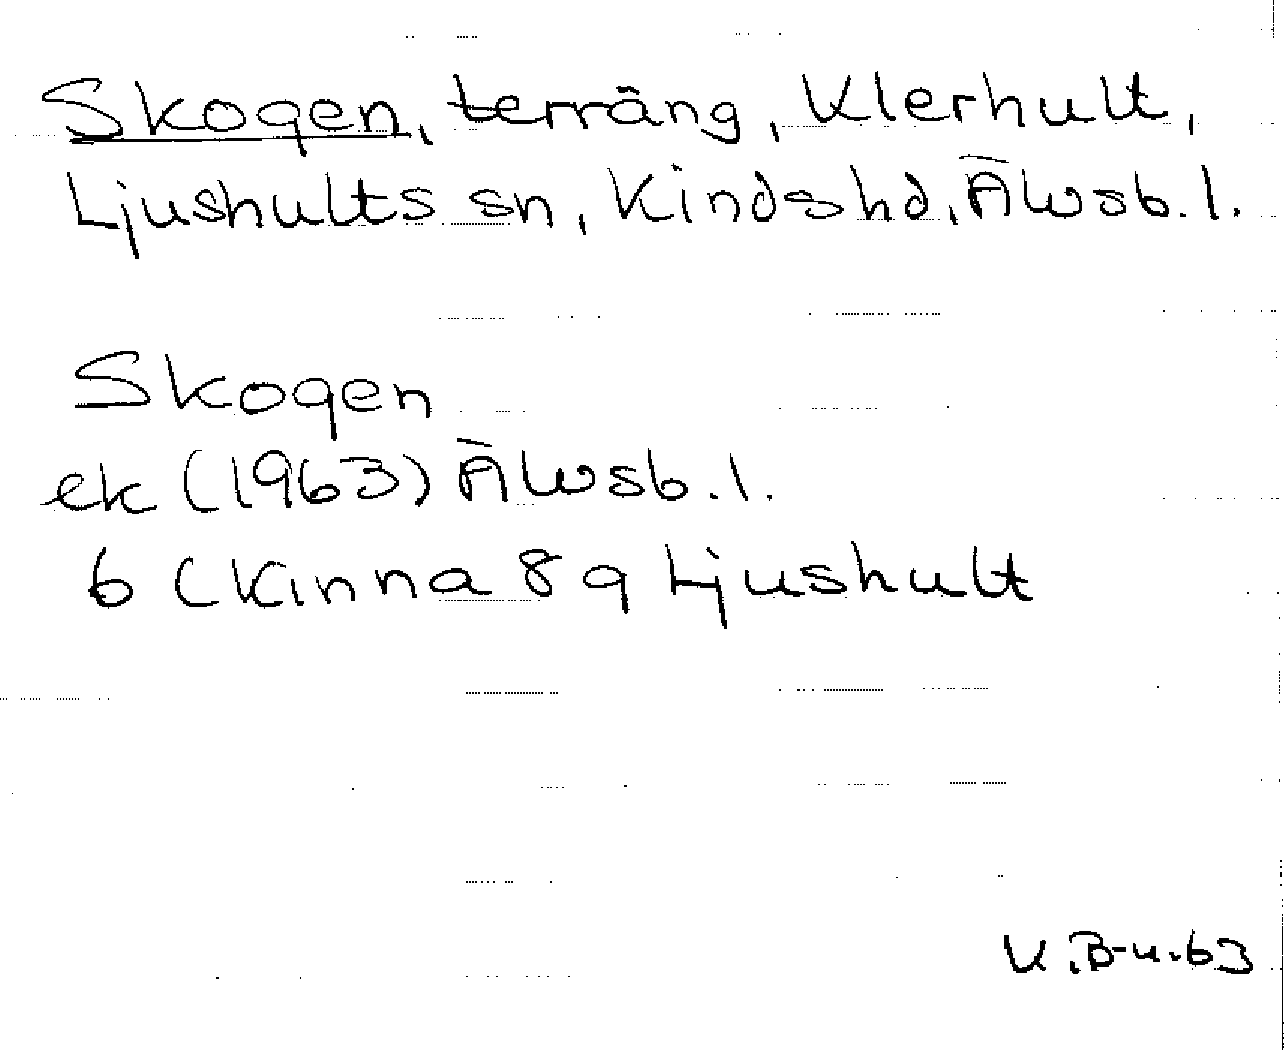 Skogen, terräng, Klerhult,
Ljushults sn, Kinds hd, Älvsb. l.
Skogen
ek (1963) Älvsb. l.
6 C Kinna 8 q Ljushult
K.B-u.63